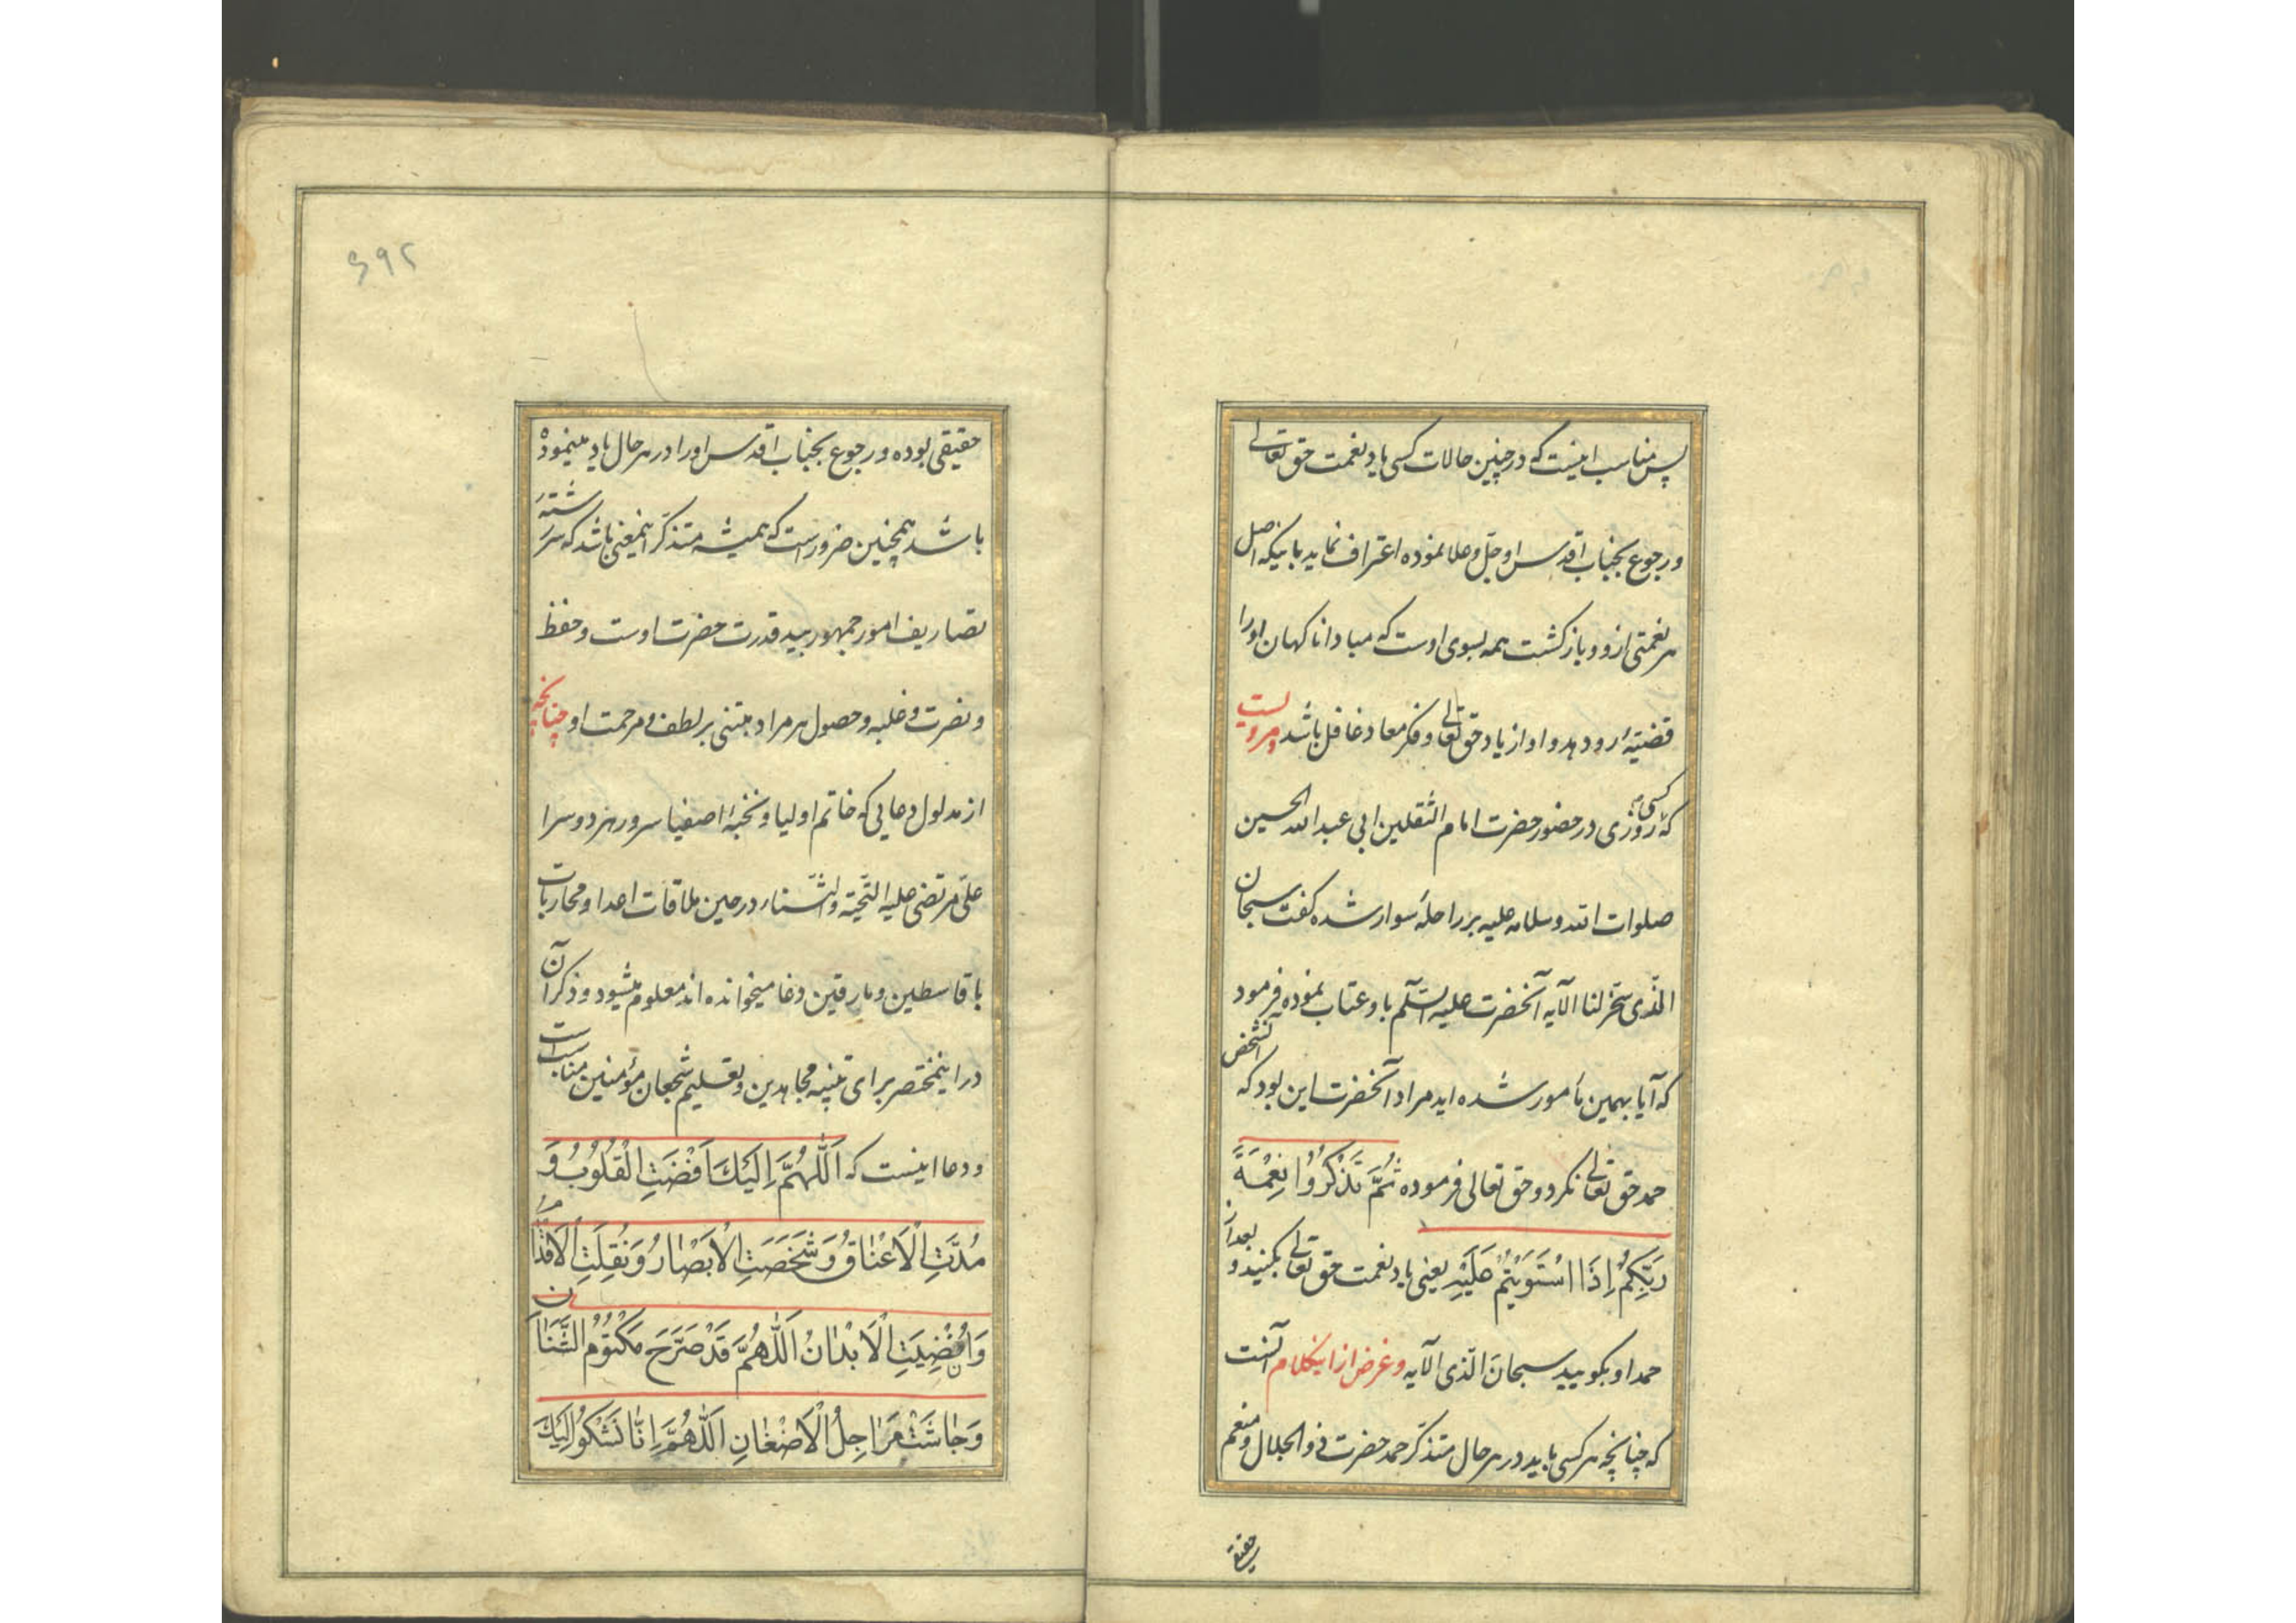 پس مناسب اینست که در چنین حالات کسی یاد نعمت حق تعالی
و رجوع بجناب اقدس او جل و علا نموده اعتراف نماید باینکه اصل
هر نعمتی ازو و بازگشت همه بسوی اوست که مبادا ناکهان اورا
قضیّهٔ رو دهد و او از یاد حق تعالی و فکر معاد غافل باشد و مرویست
که روزی کسی در حضور حضرت امام الثقلین ابی عبد الله الحسین
صلوات الله و سلامه علیه بر راحله سوار شده کفت سبحان
الّذی سخّر لنا الآیه آنحضرت علیه السّلم باو عتاب نموده فرمود
که آیا بهمین مأمور شده اید مراد آنحضرت این بود که آنشخص
حمد حق تعالی نکرد و حق تعالی فرموده ثُمَّ تَذْكُرُوا نِعْمَةَ
رَبِّكُمْ إِذَا اسْتَوَيْتُمْ عَلَيْهِ یعنی یاد نعمت حق تعالی بکنید و بعد از
حمد او بکویید سبحانَ الّذی الآیه و غرض از اینکلام آنست
که چنانچه هر کسی باید در هر حال متذکّر حمد حضرت ذو الجلال و منعم
حقیقی
۲۹۶
حقیقی بوده و رجوع بجناب اقدس اورا در هر حال یاد مینموده
باشد همچنین ضرور است که همیشه متذکّر اینمعنی باشد که سررشتهٔ
تصاریف امور جمهور بید قدرت حضرت اوست و حفظ
و نصرت و غلبه و حصول هر مراد مبتنی بر لطف و مرحمت او چنانچه
از مدلول دعایی که خاتم اولیا و نخبهٔ اصفیا سرور هر دو سرا
علی مرتضی علیه التّحیّة و الثّناء در حین ملاقات اعدا و محاربات
با قاسطین و مارقین و غا میخوانده اند معلوم میشود و ذکر آن
در اینمختصر برای تنبیه مجاهدین و تعلیم شجعان مؤمنین مناسب است
و دعا اینست که اَللّٰهُمَّ اِلَيْكَ اَفْضَتِ الْقُلُوبُ وَ
مُدَّتِ الْاَعْنَاقُ وَشَخَصَتِ الْاَبْصَارُ وَنُقِلَتِ الْاَقْدَامُ
وَاُنْضِيَتِ الْاَبْدَانُ اَللّٰهُمَّ قَدْ صَرَّحَ مَكْتُومُ الشَّنَاٰنِ
وَجَاشَتْ مَرَاجِلُ الْاَضْغَانِ اَللّٰهُمَّ اِنَّا نَشْكُو اِلَيْكَ